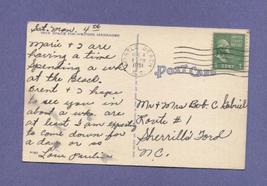 THIS SPACE FOR WRITING MESSAGES
Sat. Mon. 4th
Marie & I are
having a time
spending a wk
at the Beach.
Brent & I hope
to see you in
about a wk. are
at least I am expecting
to come down for
a day or so
Love
POST CARD
1951
Mr & Mrs Bob C. Gabriel
Route # 1
Sherrills Ford
N.C.